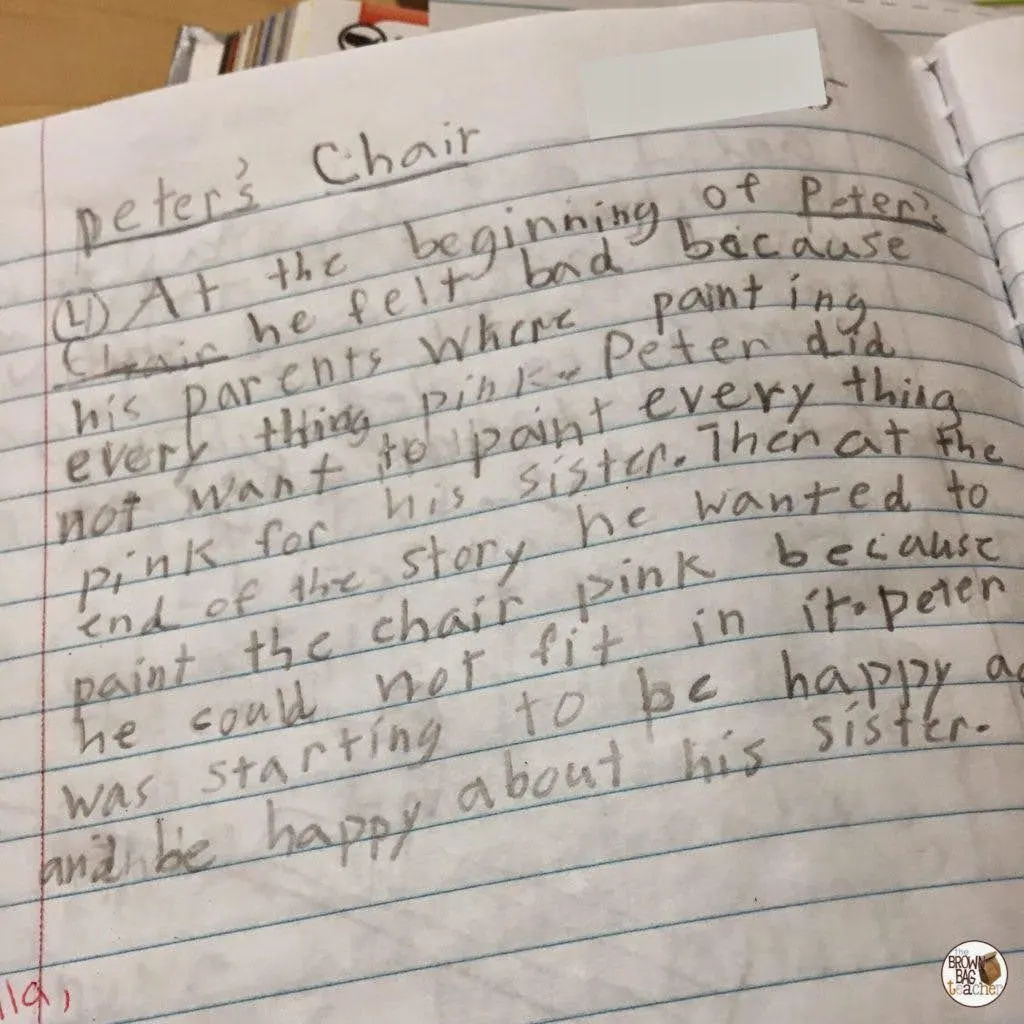 peter's Chair
(4) At the beginning of Peter's
Chair he felt bad because
his parents where painting
every thing pink. Peter did
not want to paint every thing
pink for his sister. Then at the
end of the story he wanted to
paint the chair pink because
he could not fit in it. peter
was starting to be happy
and be happy about his sister.
the
BROWN
BAG
teacher